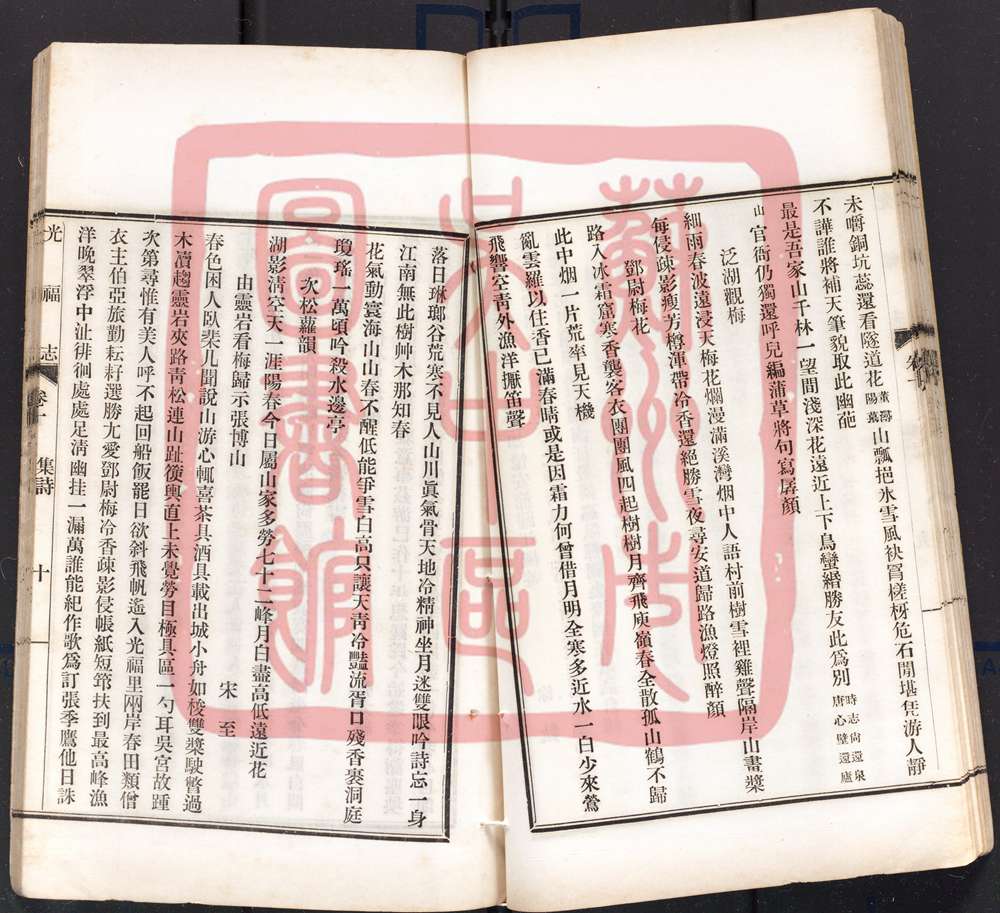 未嚼銅坑蕊還看隧道花董潯陽墓山瓢挹氷雪風袂罥槎枒危石閒堪凭游人靜
不譁誰將補天筆貌取此幽葩
最是吾家山千林一望間淺深花遠近上下鳥蠻緡勝友此為別時志尚還泉唐心壁還廬
山官衙仍獨還呼兒編蒲草將句寫孱顏
泛湖觀梅
細雨春波遠浸天梅花爛漫滿溪灣烟中人語村前樹雪裡雞聲隔岸山畫槳
每侵疎影瘦芳樽渾帶冷香還絕勝雪夜尋安道歸路漁燈照醉顏
鄧尉梅花
路入冰霜窟寒香襲客衣團團風四起樹樹月齊飛庾嶺春全散孤山鶴不歸
此中烟一片荒率見天機
亂雲羅以住香已滿春晴或是因霜力何曾借月明全寒多近水一白少來鶯
飛響空青外漁洋擫笛聲
落日琳瑯谷荒寒不見人山川眞氣骨天地冷精神坐月迷雙眼吟詩忘一身
江南無此樹艸木那知春
花氣動寰海山山春不醒低能爭雪白高只讓天青冷豔流胥口殘香裛洞庭
瓊瑤一萬頃吟殺水邊亭
次松蘿韻
湖影清空天一涯陽春今日屬山家多勞七十二峰月白盡高低遠近花
由靈岩看梅歸示張博山
宋至
春色困人臥榘几聞說山游心輒喜茶具酒具載出城小舟如梭雙槳駛瞥過
木瀆趨靈岩夾路青松連山趾筱輿直上未覺勞目極具區一勺耳吳宮故踵
次第尋惟有美人呼不起回船飯罷日欲斜飛帆遙入光福里兩岸春田類僧
衣主伯亞旅勤耘耔選勝尢愛鄧尉梅冷香疎影侵帳紙短筇扶到最高峰漁
洋晚翠浮中沚徘徊處處足清幽挂一漏萬誰能紀作歌為訂張季鷹他日誅
光福志
卷十
集詩
十
蘇州市吳中區圖書館